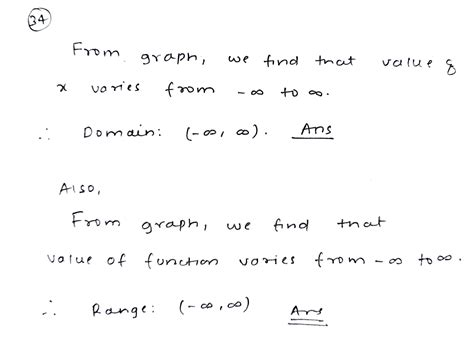 34
From graph, we find that value of
x varies from -∞ to ∞.
∴ Domain: (-∞, ∞). Ans
Also,
From graph, we find that
value of function varies from -∞ to ∞.
∴ Range: (-∞, ∞) Ans